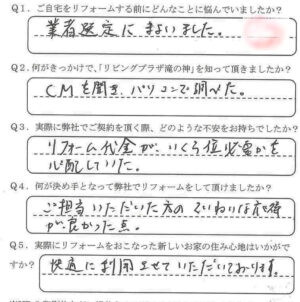 Q1. ご自宅をリフォームする前にどんなことに悩んでいましたか？
業者選定にまよいました。
Q2. 何がきっかけで、「リビングプラザ滝の神」を知って頂きましたか？
CMを聞き、パソコンで調べた。
Q3. 実際に弊社でご契約を頂く際、どのような不安をお持ちでしたか？
リフォーム代金が、いくら位必要かを
心配していた。
Q4. 何が決め手となって弊社でリフォームをして頂けましたか？
ご担当いただいた方のていねいな応対
が良かった点。
Q5. 実際にリフォームをおこなった新しいお家の住み心地はいかが
ですか？ 快適に利用させていただいております。